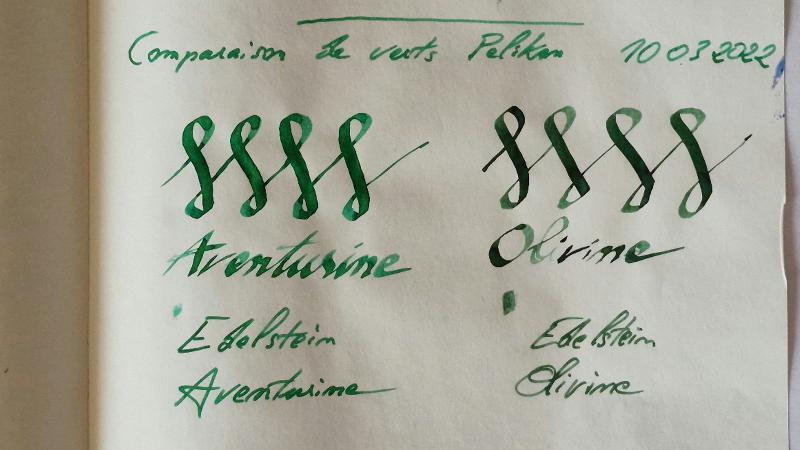 Comparaison de verts Pelikan 10 03 2022
Aventurine Olivine
Edelstein Edelstein
Aventurine Olivine